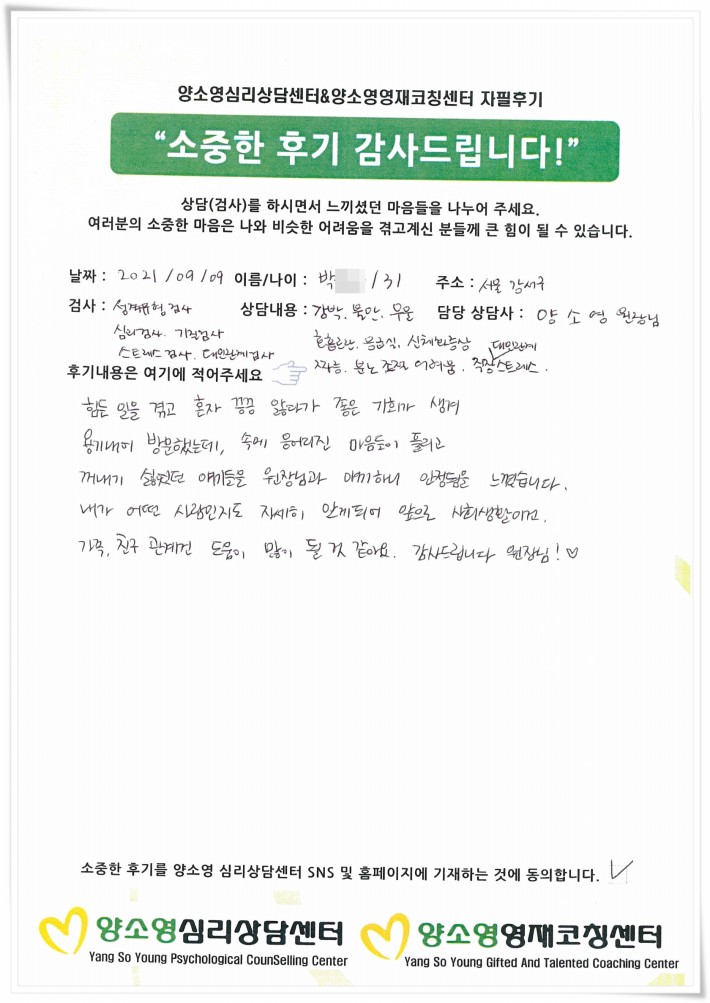 양소영심리상담센터&양소영영재코칭센터 자필후기
“소중한 후기 감사드립니다!”
상담(검사)를 하시면서 느끼셨던 마음들을 나누어 주세요.
여러분의 소중한 마음은 나와 비슷한 어려움을 겪고계신 분들께 큰 힘이 될 수 있습니다.
날짜 : 2021/09/09 이름/나이 : 박 /31 주소 : 서울 강서구
검사 : 성격유형검사 상담내용 : 강박.불안.우울 담당 상담사 : 양소영 원장님
심리검사. 기질검사 호흡곤란. 신체화증상 대인관계
스트레스검사. 대인관계검사 짜증. 분노 조절 어려움. 직장스트레스.
후기내용은 여기에 적어주세요
힘든 일을 겪고 혼자 끙끙 앓다가 좋은 기회가 생겨
용기내어 방문했는데, 속에 응어리진 마음들이 풀리고
꺼내기 싫었던 얘기들을 원장님과 얘기하니 안정됨을 느꼈습니다.
내가 어떤 사람인지도 자세히 알게되어 앞으로 사회생활이건.
가족, 친구 관계건 도움이 많이 될 것 같아요. 감사드립니다 원장님!♡
소중한 후기를 양소영 심리상담센터 SNS 및 홈페이지에 기재하는 것에 동의합니다. ✓
양소영심리상담센터 양소영영재코칭센터
Yang So Young Psychological CounSelling Center Yang So Young Gifted And Talented Coaching Center